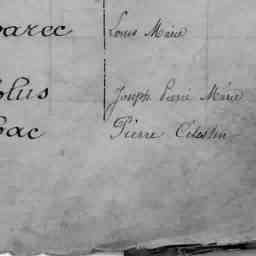 parec Louis Marie
olus Joseph Pierre Marie
bac Pierre Célestin